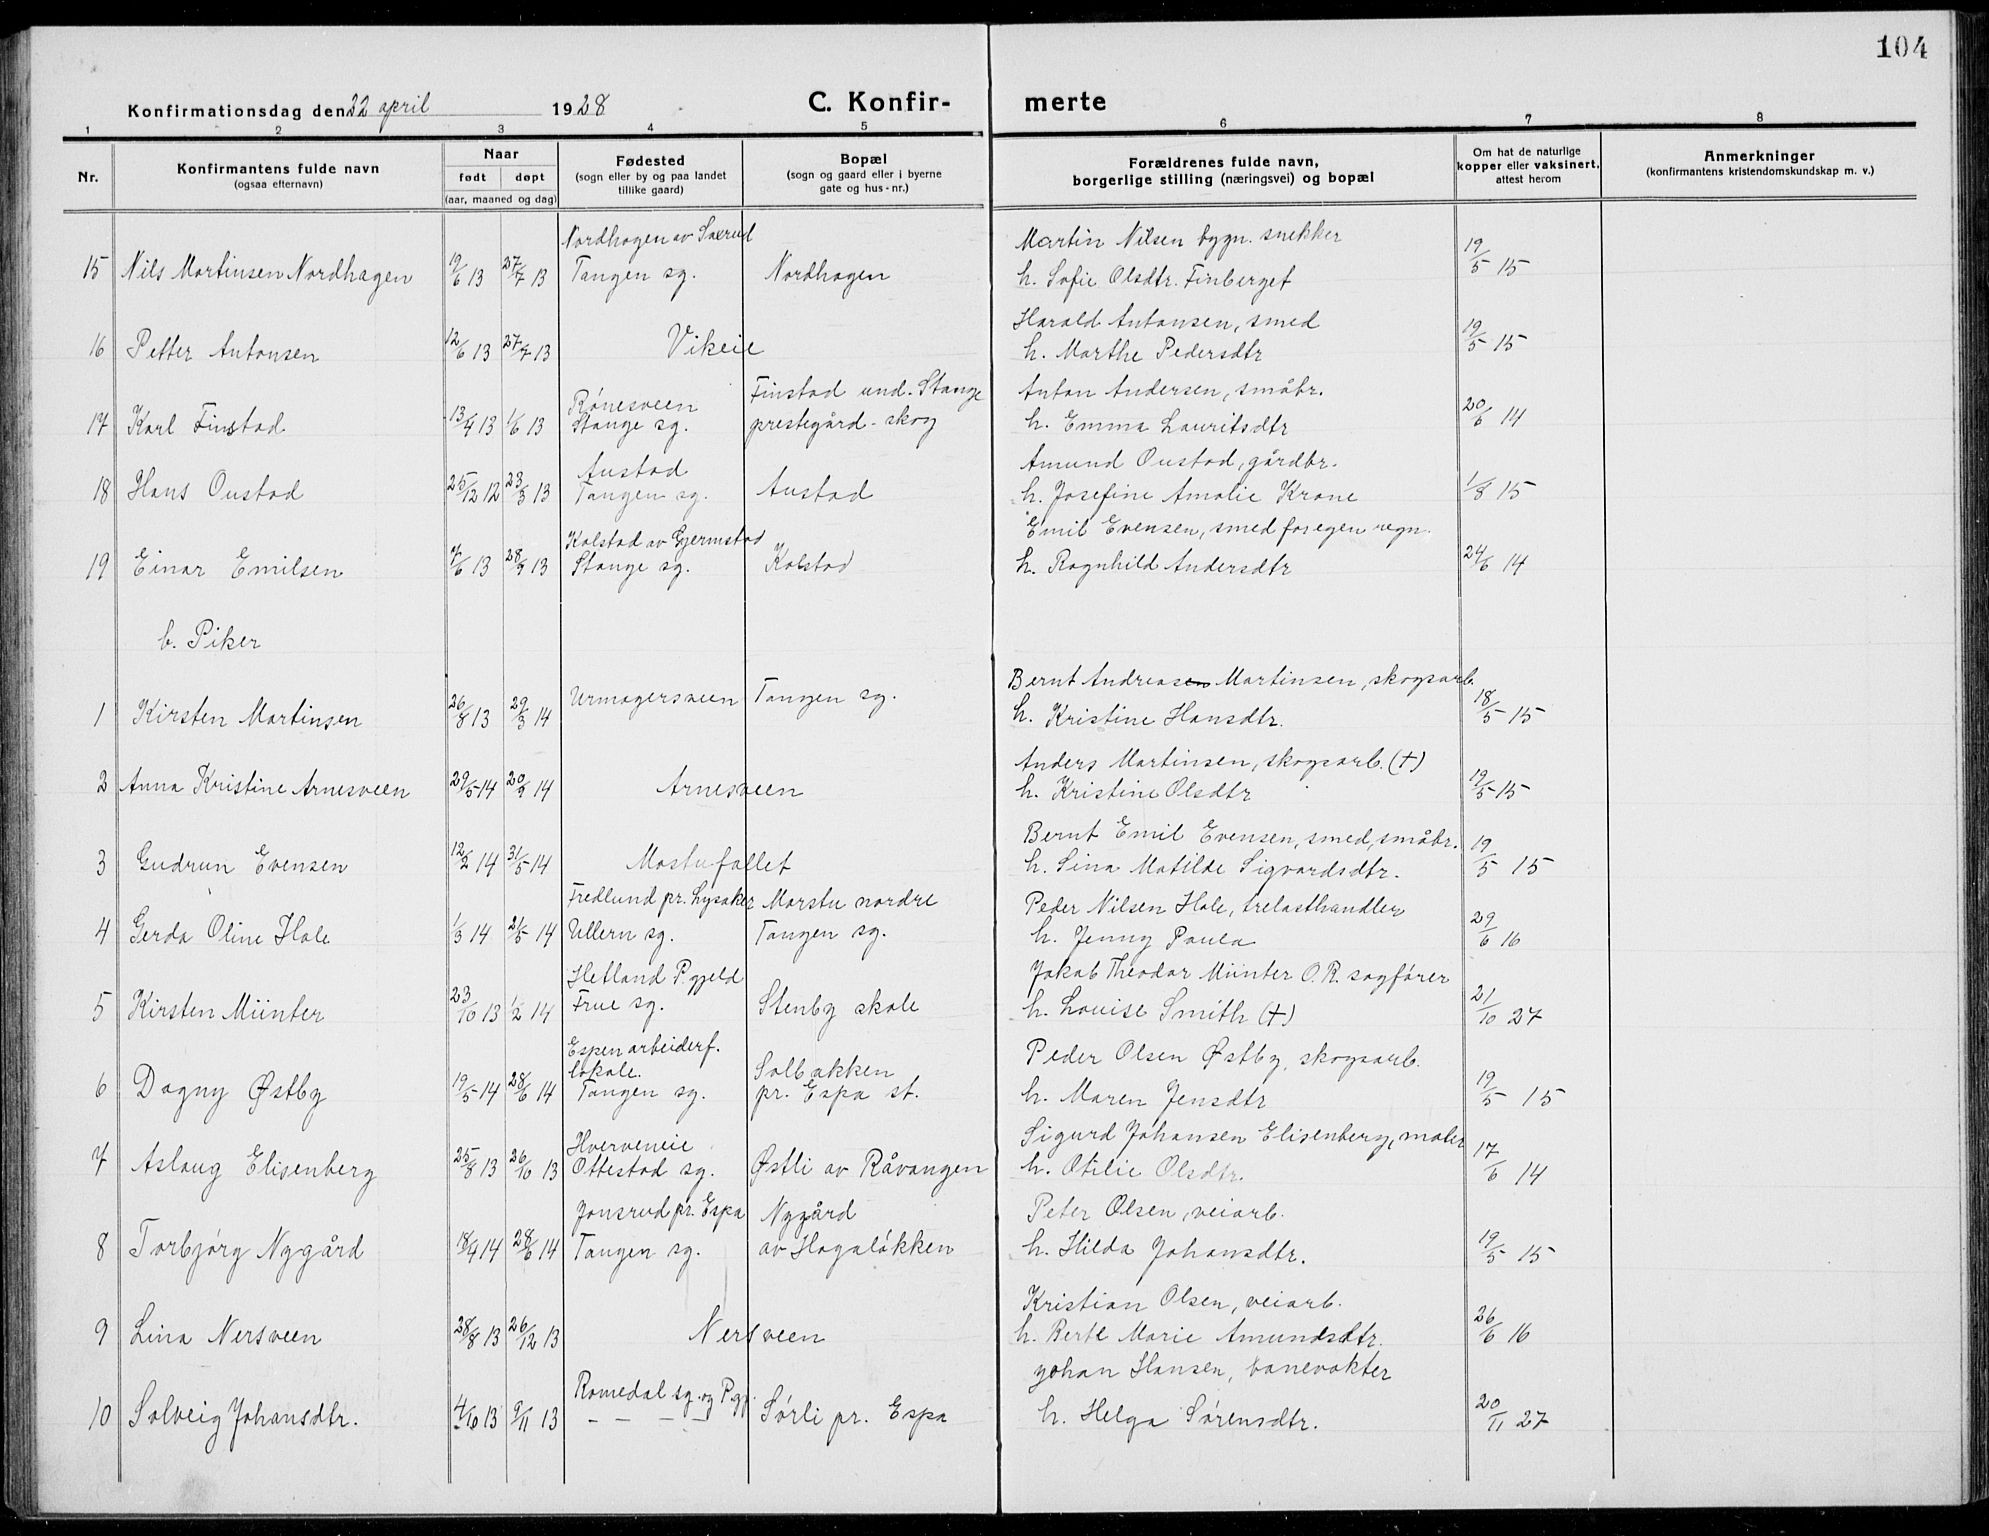 104
Konfirmationsdag den 22 april 1928
C. Konfir-
merte
1 2 3 4 5 6 7 8
Nr.
Konfirmantens fulde navn
(ogsaa efternavn)
Naar
født døpt
(aar, maaned og dag)
Fødested
(sogn eller by og paa landet
tillike gaard)
Bopæl
(sogn og gaard eller i byerne
gate og hus-nr.)
Forældrenes fulde navn,
borgerlige stilling (næringsvei) og bopæl
Om hat de naturlige
kopper eller vaksinert,
attest herom
Anmerkninger
(konfirmantens kristendomskundskap m. v.)
Nordhagen av Saxrud Martin Nilsen bygn. snekker
15 Nils Martinsen Nordhagen 19/6 13 27/7 13 Tangen sg. Nordhagen h. Sofie Olsdtr. Finberget 19/5 15
Harald Antonsen, smed
16 Petter Antonsen 12/6 13 27/7 13 Vikeie h. Marthe Pedersdtr 19/5 15
Rønesveen Finstad und. Stange Anton Andersen, småbr.
17 Karl Finstad 13/4 13 1/6 13 Stange sg. prestegård-skog h. Emma Lauritsdtr 20/6 14
Austad Amund Oustad, gårdbr.
18 Hans Oustad 25/12 12 23/3 13 Tangen sg. Austad h. Josefine Amalie Krane 1/8 15
Kolstad av Gjermstad Emil Evensen, smed for egen regn.
19 Einar Emilsen 7/6 13 28/9 13 Stange sg. Kolstad h. Ragnhild Andersdtr 24/6 14
b. Piker
Urmagersveen Tangen sg. Bernt Andreasen Martinsen, skogsarb.
1 Kirsten Martinsen 26/8 13 29/3 14 h. Kristine Hansdtr. 18/5 15
Anders Martinsen, skogsarb. (+)
2 Anna Kristine Arnesveen 29/5 14 20/9 14 Arnesveen h. Kristine Olsdtr 19/5 15
Bernt Emil Evensen, smed, småbr.
3 Gudrun Evensen 12/2 14 31/5 14 Mostufallet h. Lina Matilde Sigvardsdtr. 19/5 15
Fredlund pr. Lysaker Marstu nordre Peder Nilsen Hole, trelasthandler
4 Gerda Oline Hole 1/3 14 21/5 14 Ullern sg. Tangen sg. h. Jenny Paula 29/6 16
Hetland P.gjeld Jakob Theodor Münter O.R. sagfører
5 Kirsten Münter 23/10 13 1/2 14 Frue sg. Stenby skole h. Louise Smith (+) 21/10 27
Espen arbeiderf.
lokale. Solbakken Peder Olsen Østby, skogsarb.
6 Dagny Østby 19/5 14 28/6 14 Tangen sg. pr. Espa st. h. Maren Jensdtr 19/5 15
Hverveneie Sigurd Johansen Elisenberg, maler
7 Aslaug Elisenberg 25/8 13 26/10 13 Ottestad sg. Østli av Råvangen h. Otilie Olsdtr. 17/6 14
Jonsrud pr. Espa Nygård Peter Olsen, veiarb.
8 Torbjørg Nygård 18/4 14 28/6 14 Tangen sg. av Hagaløkken h. Hilda Johansdtr. 19/5 15
Kristian Olsen, veiarb.
9 Lina Nersveen 28/8 13 26/12 13 Nersveen h. Berte Marie Amundsdtr. 26/6 16
Romedal sg. og P.gj. Johan Hansen, banevokter
10 Solveig Johansdtr. 4/10 13 9/11 13 – – – – Sørli pr. Espa h. Helga Sørensdtr. 20/11 27